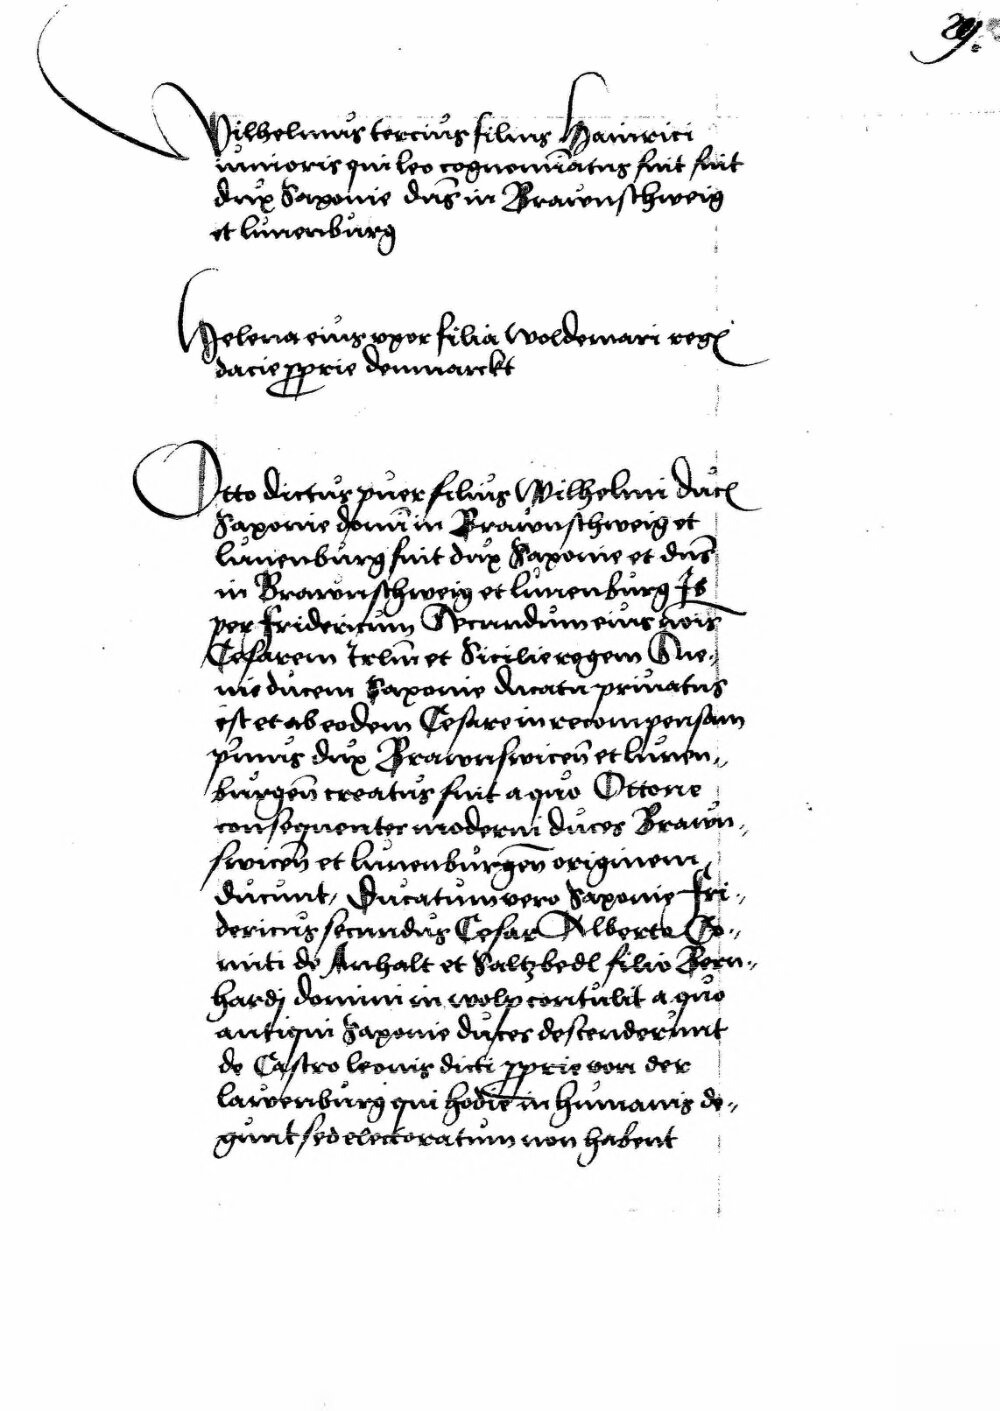 29.
Wilhelmus tercius filius Hainrici
iunioris qui leo cognomi̅atus fuit fuit
dux Saxonie dn̅s in Brawnschweig
et lunenburg
Helena eius vxor filia Woldemari reg
dacie pprie denmarckt
Otto dictus puer filius Wilhelmi duc
Saxonie domi̅ in Brawnschweig et
lunenburg fuit dux Saxonie et dn̅s
in Brawnschweig et lunenburg Is
per Fridericum Secundum eius no̅is
Cesarem Jrlm̅ et Sicilie regem Sue-
uie ducem Saxonie ducatu priuatus
est et ab eodem Cesare in recompensam
p̍mus dux Brawnswicen̅ et lunen-
burgen̅ creatus fuit a quo Ottone
consequenter moderni duces Brawn-
swicen̅ et lunenburgen̅ originem
ducunt / Ducatum vero Saxonie Fri-
dericus secundus Cesar Alberto Co-
miti de Anhalt et Saltzbedl filio Bern-
hardj domini in wolp contulit a quo
antiqui Saxonie duces descenderunt
de Castro leonis dicti pprie von der
lawenburg qui hodie in humanis de-
gunt sed electoratum non habent